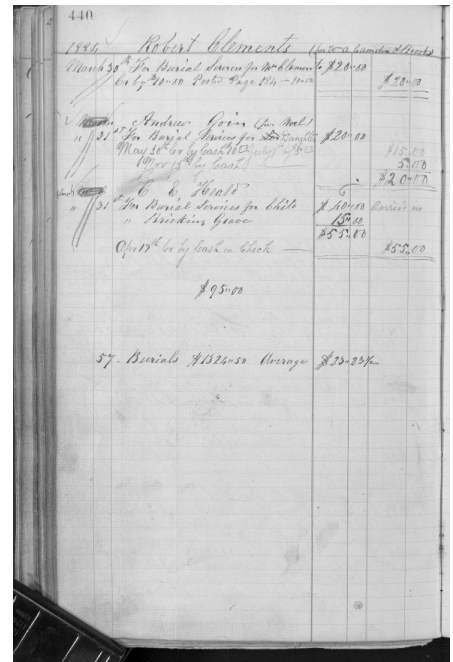 440
1884 Robert Clements
March 30th For Burial Services for Mr Clements $20-00
Cr by $10-00 Posted Page 184 $20-00
Andrew Goin
" 31st For Burial Services for Daughter $20-00
May 30th Cr by Cash $15-00
by Cash 5-00
$20-00
C. E. Heald
" 31st For Burial Services for Child $40-00
" Bricking Grave 15-00
$55-00
Apr 17th Cr by Cash in Check $55-00
$95-00
57. Burials $1324-50 Average $23-23½